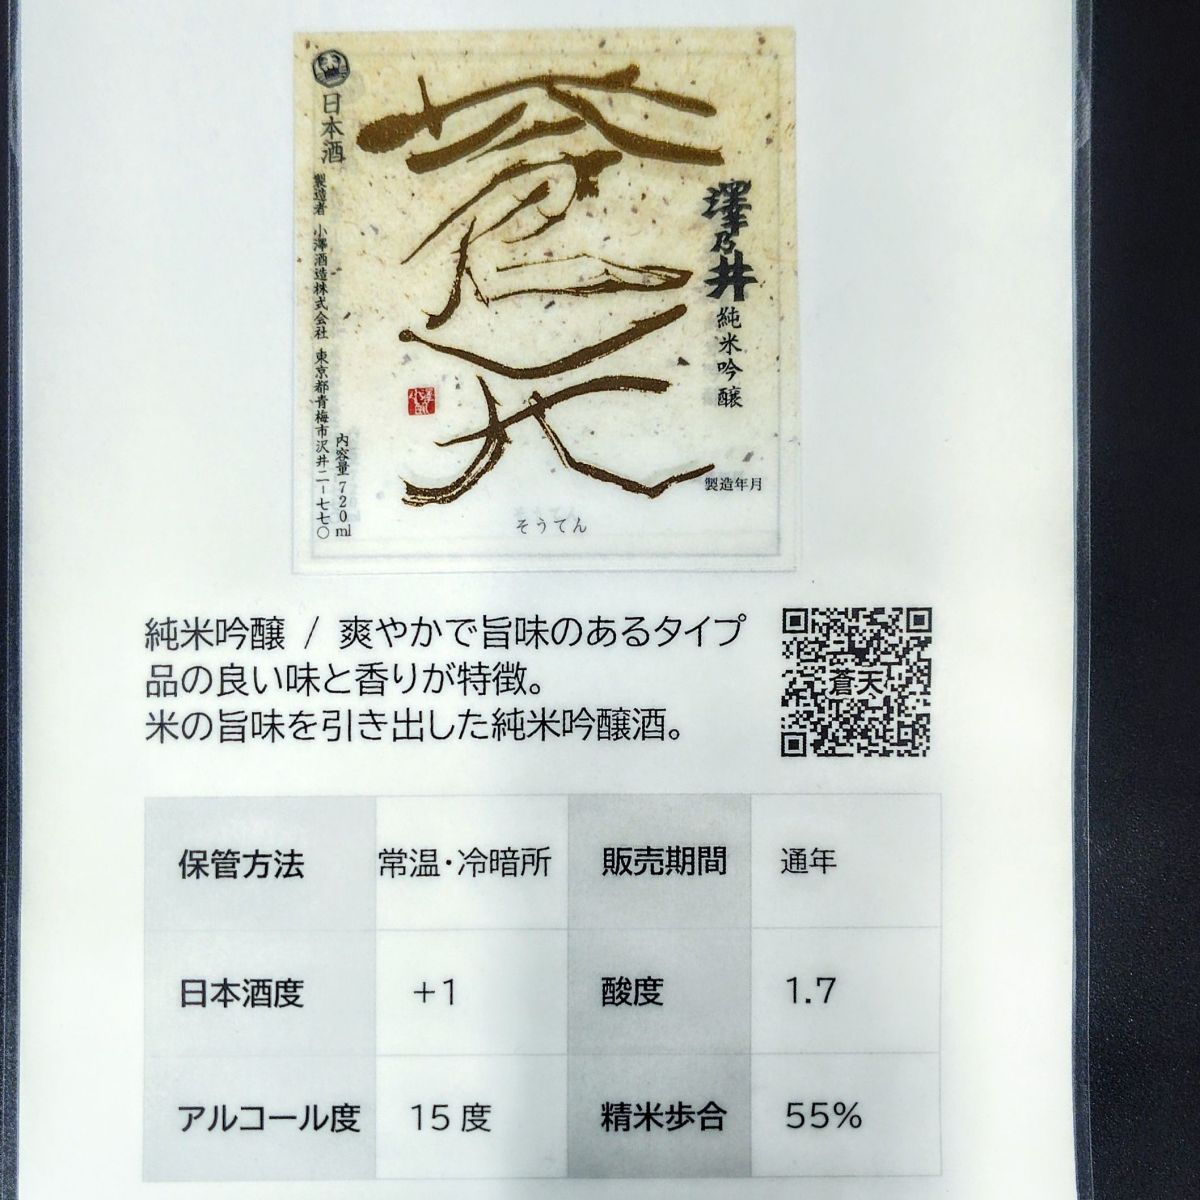 澤乃井
純米吟醸
製造年月
蒼天
そうてん
日本酒
製造者 小澤酒造株式会社 東京都青梅市沢井二−七七〇
内容量720ml
純米吟醸 / 爽やかで旨味のあるタイプ
品の良い味と香りが特徴。
米の旨味を引き出した純米吟醸酒。
蒼天
保管方法 常温・冷暗所 販売期間 通年
日本酒度 +1 酸度 1.7
アルコール度 15度 精米歩合 55%